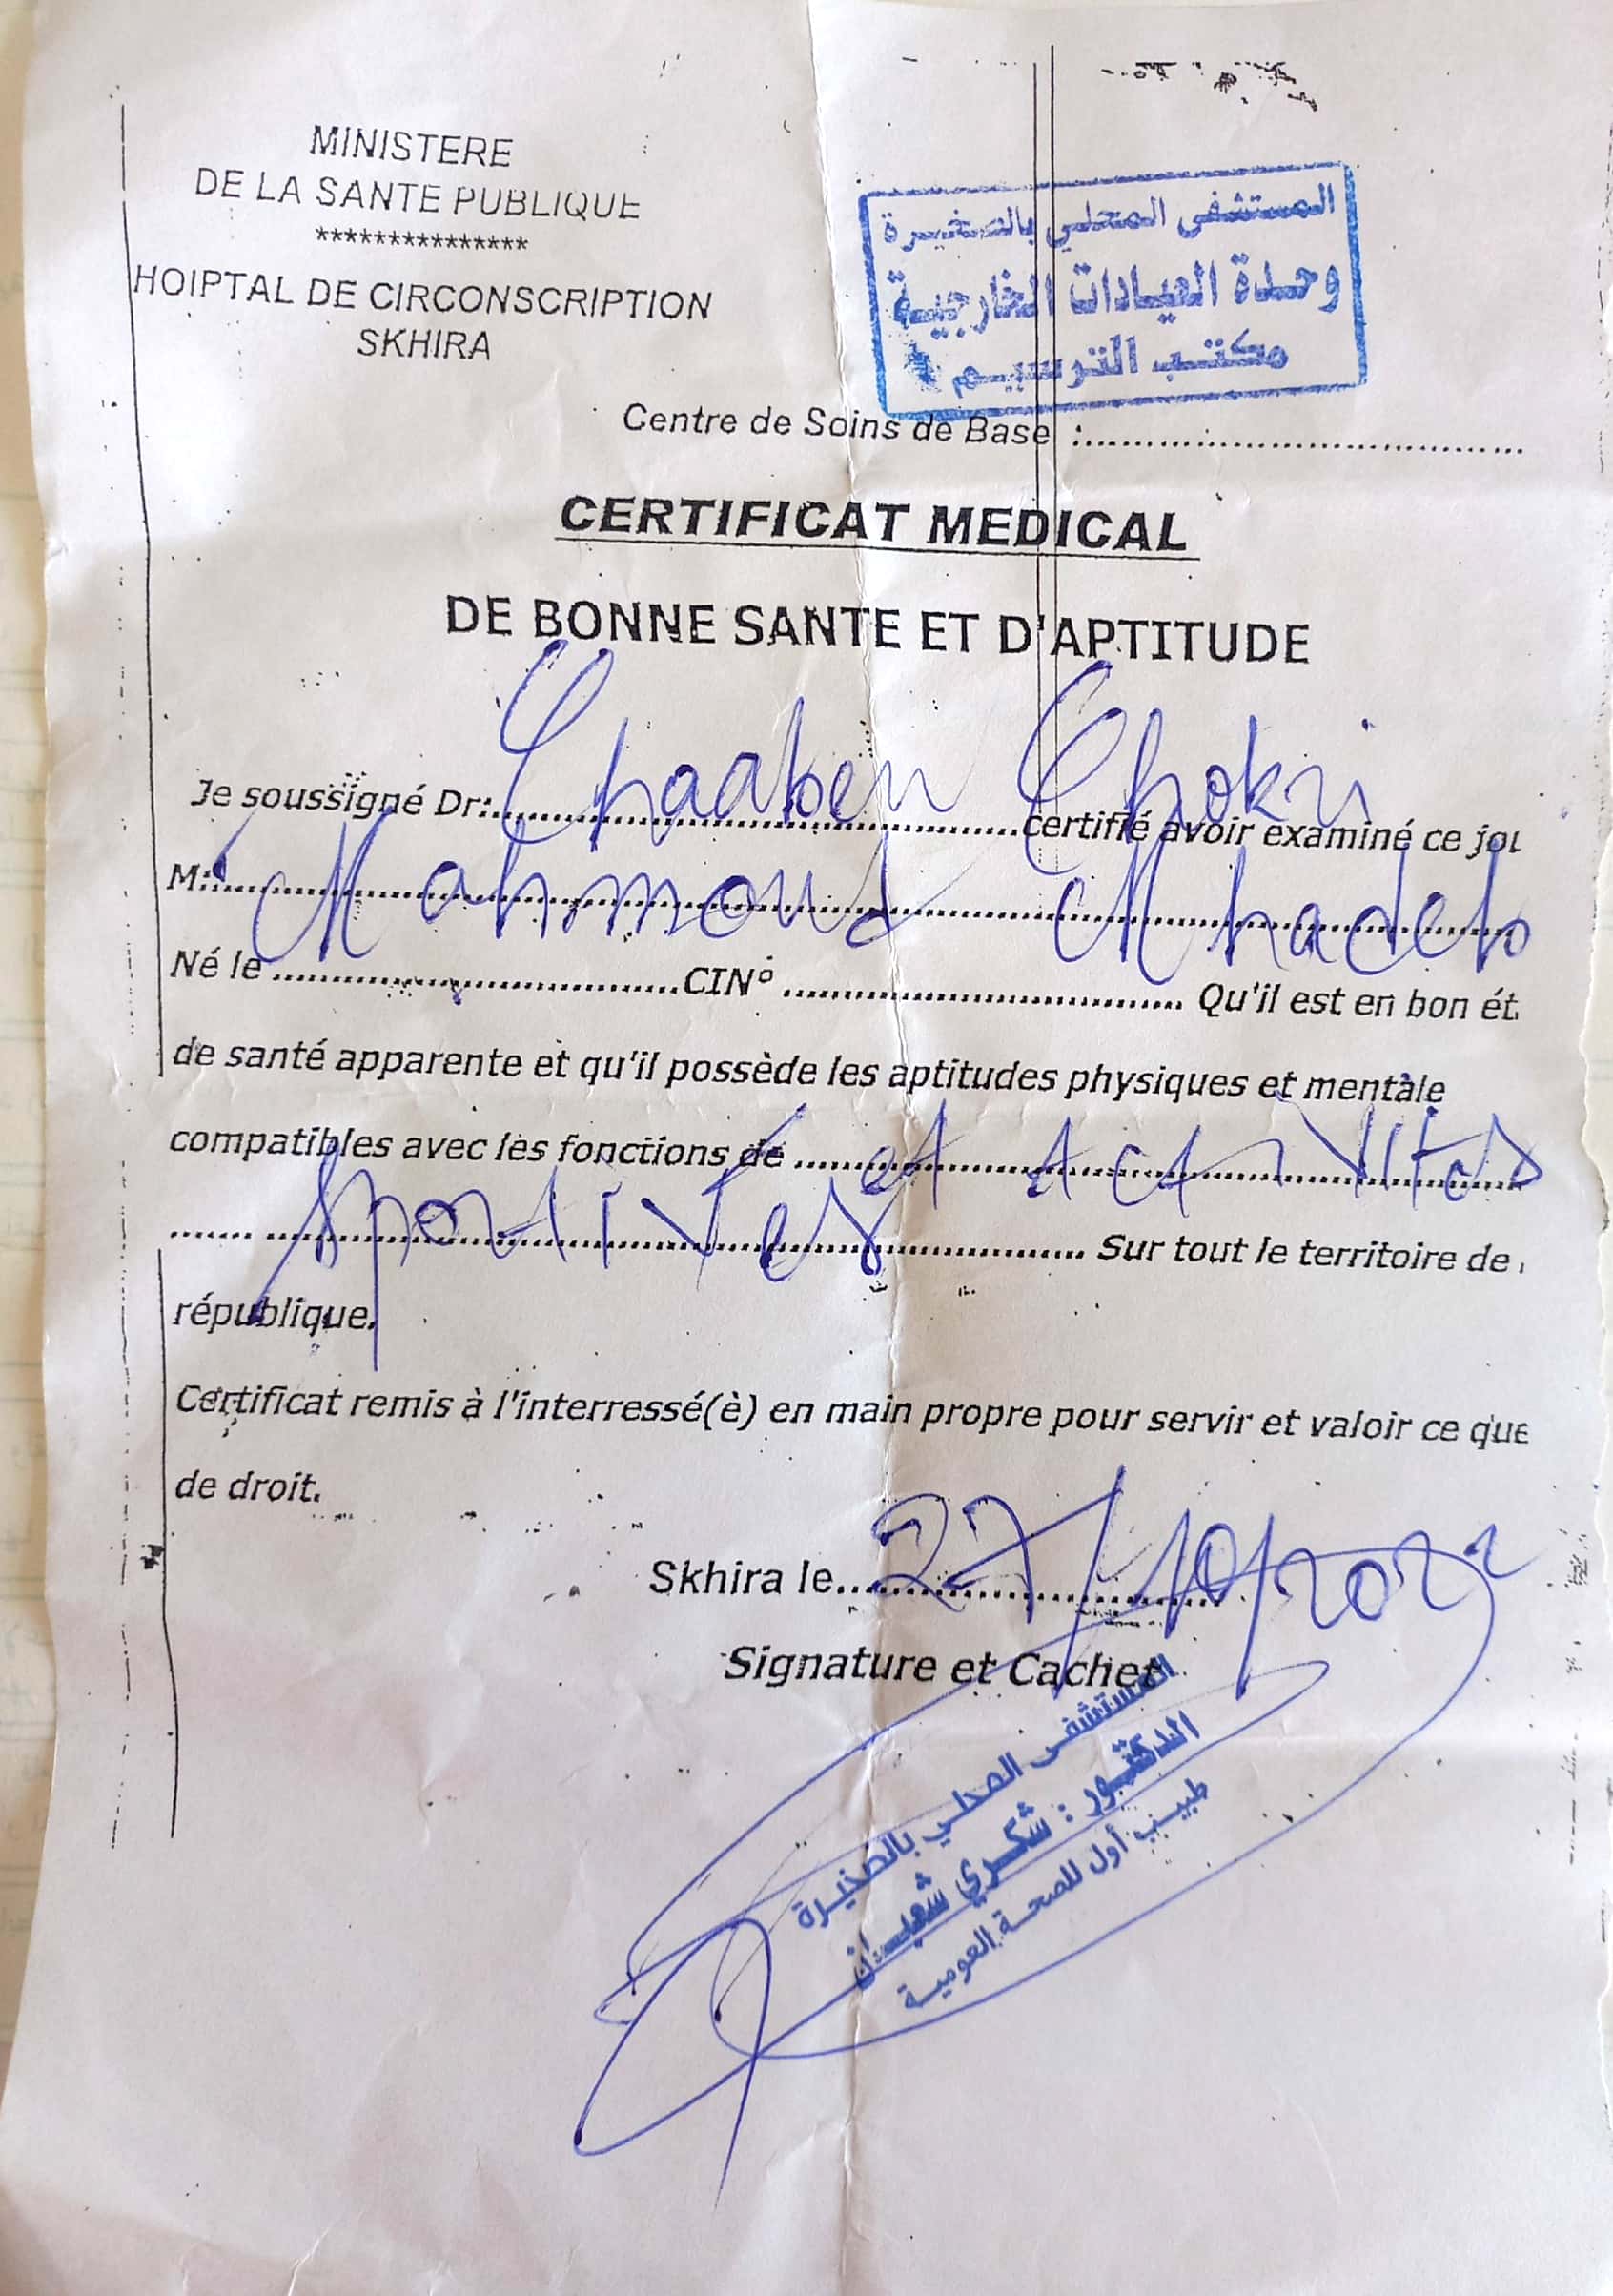 MINISTERE
DE LA SANTE PUBLIQUE
***************
HOIPTAL DE CIRCONSCRIPTION
SKHIRA
المستشفى المحلي بالصخيرة
وحدة العيادات الخارجية
مكتب الترسيم
Centre de Soins de Base :..............................
CERTIFICAT MEDICAL
DE BONNE SANTE ET D'APTITUDE
Je soussigné Dr: Chaaben Chokri certifié avoir examiné ce jou
M: Mahmoud Mhadeb
Né le ..............................CIN° .............................. Qu'il est en bon ét
de santé apparente et qu'il possède les aptitudes physiques et mentale
compatibles avec les fonctions de et activités
sportives Sur tout le territoire de
république.
Certificat remis à l'interressé(è) en main propre pour servir et valoir ce que
de droit.
Skhira le 27/10/2022
Signature et Cachet
المستشفى المحلي بالصخيرة
الدكتور : شكري شعبان
طبيب أول للصحة العمومية